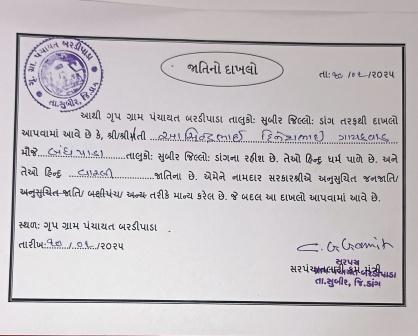 ગૃ. ગ્રા. પંચાયત બરડીપાડા
તા.સુબીર, જિ.ડાંગ
જાતિનો દાખલો
તા:૧૦/૦૨/૨૦૨૫
આથી ગૃપ ગ્રામ પંચાયત બરડીપાડા તાલુકો: સુબીર જિલ્લો: ડાંગ તરફથી દાખલો
આપવામાં આવે છે કે, શ્રી/શ્રીમતી દિનેશભાઈ ગાયકવાડ
મોજે તાલુકો: સુબીર જિલ્લો: ડાંગના રહીશ છે. તેઓ હિન્દુ ધર્મ પાળે છે. અને
તેઓ હિન્દુ જાતિના છે. એમને નામદાર સરકારશ્રીએ અનુસુચિત જનજાતિ/
અનુસુચિત-જાતિ/ બક્ષીપંચ/ અન્ય તરીકે માન્ય કરેલ છે. જે બદલ આ દાખલો આપવામાં આવે છે.
સ્થળ: ગૃપ ગ્રામ પંચાયત બરડીપાડા
તારીખ:૧૦/૦૨/૨૦૨૫
સરપંચ
બરડીપાડા
તા.સુબીર, જિ.ડાંગ